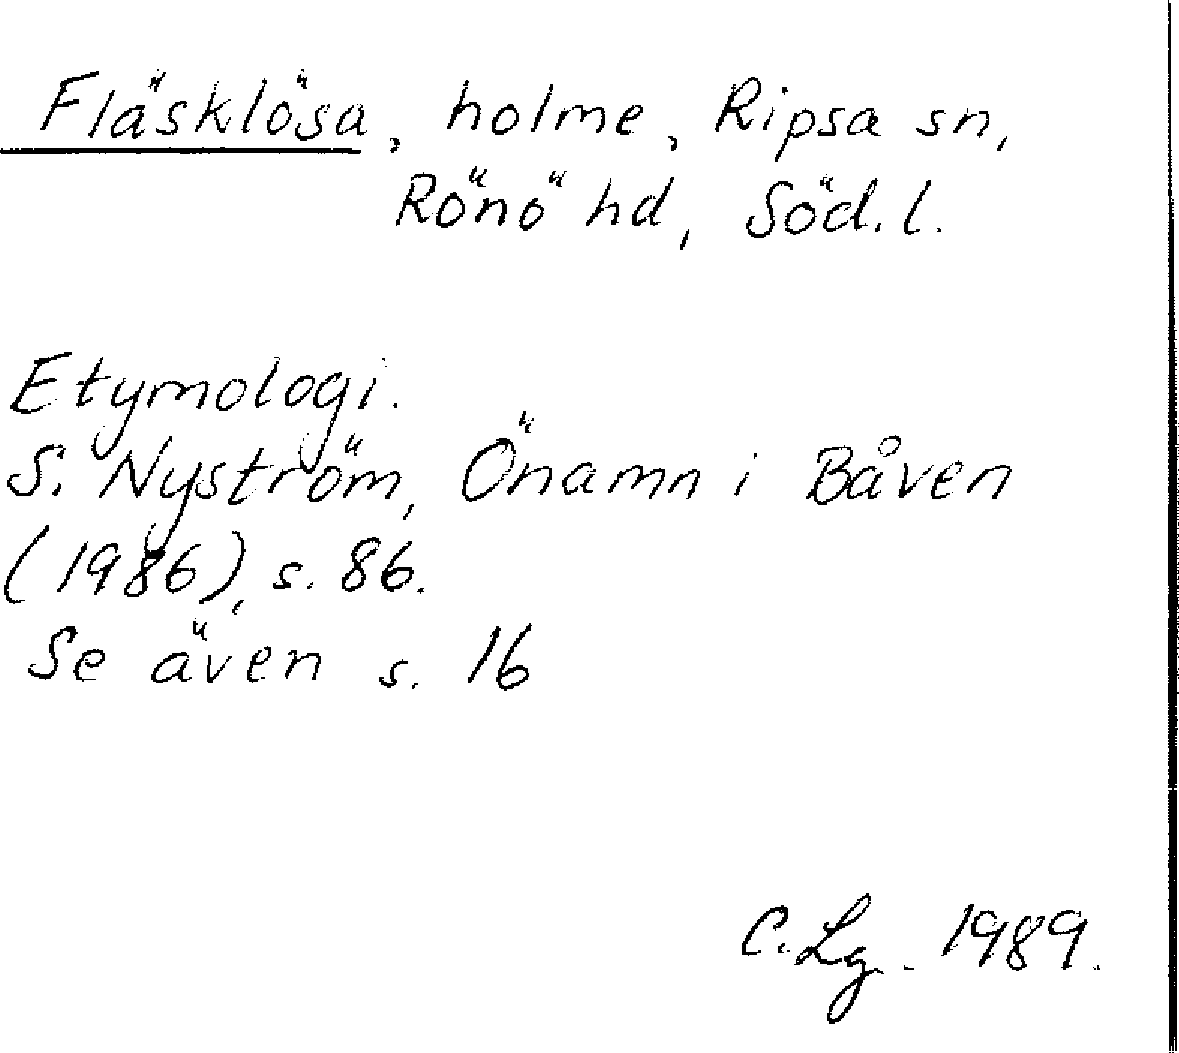 Fläsklösa, holme, Ripsa sn,
Rönö hd, Söd. l.
Etymologi.
S. Nyström, Önamn i Båven
(1986), s. 86.
Se även s. 16
C. Lg. 1989.